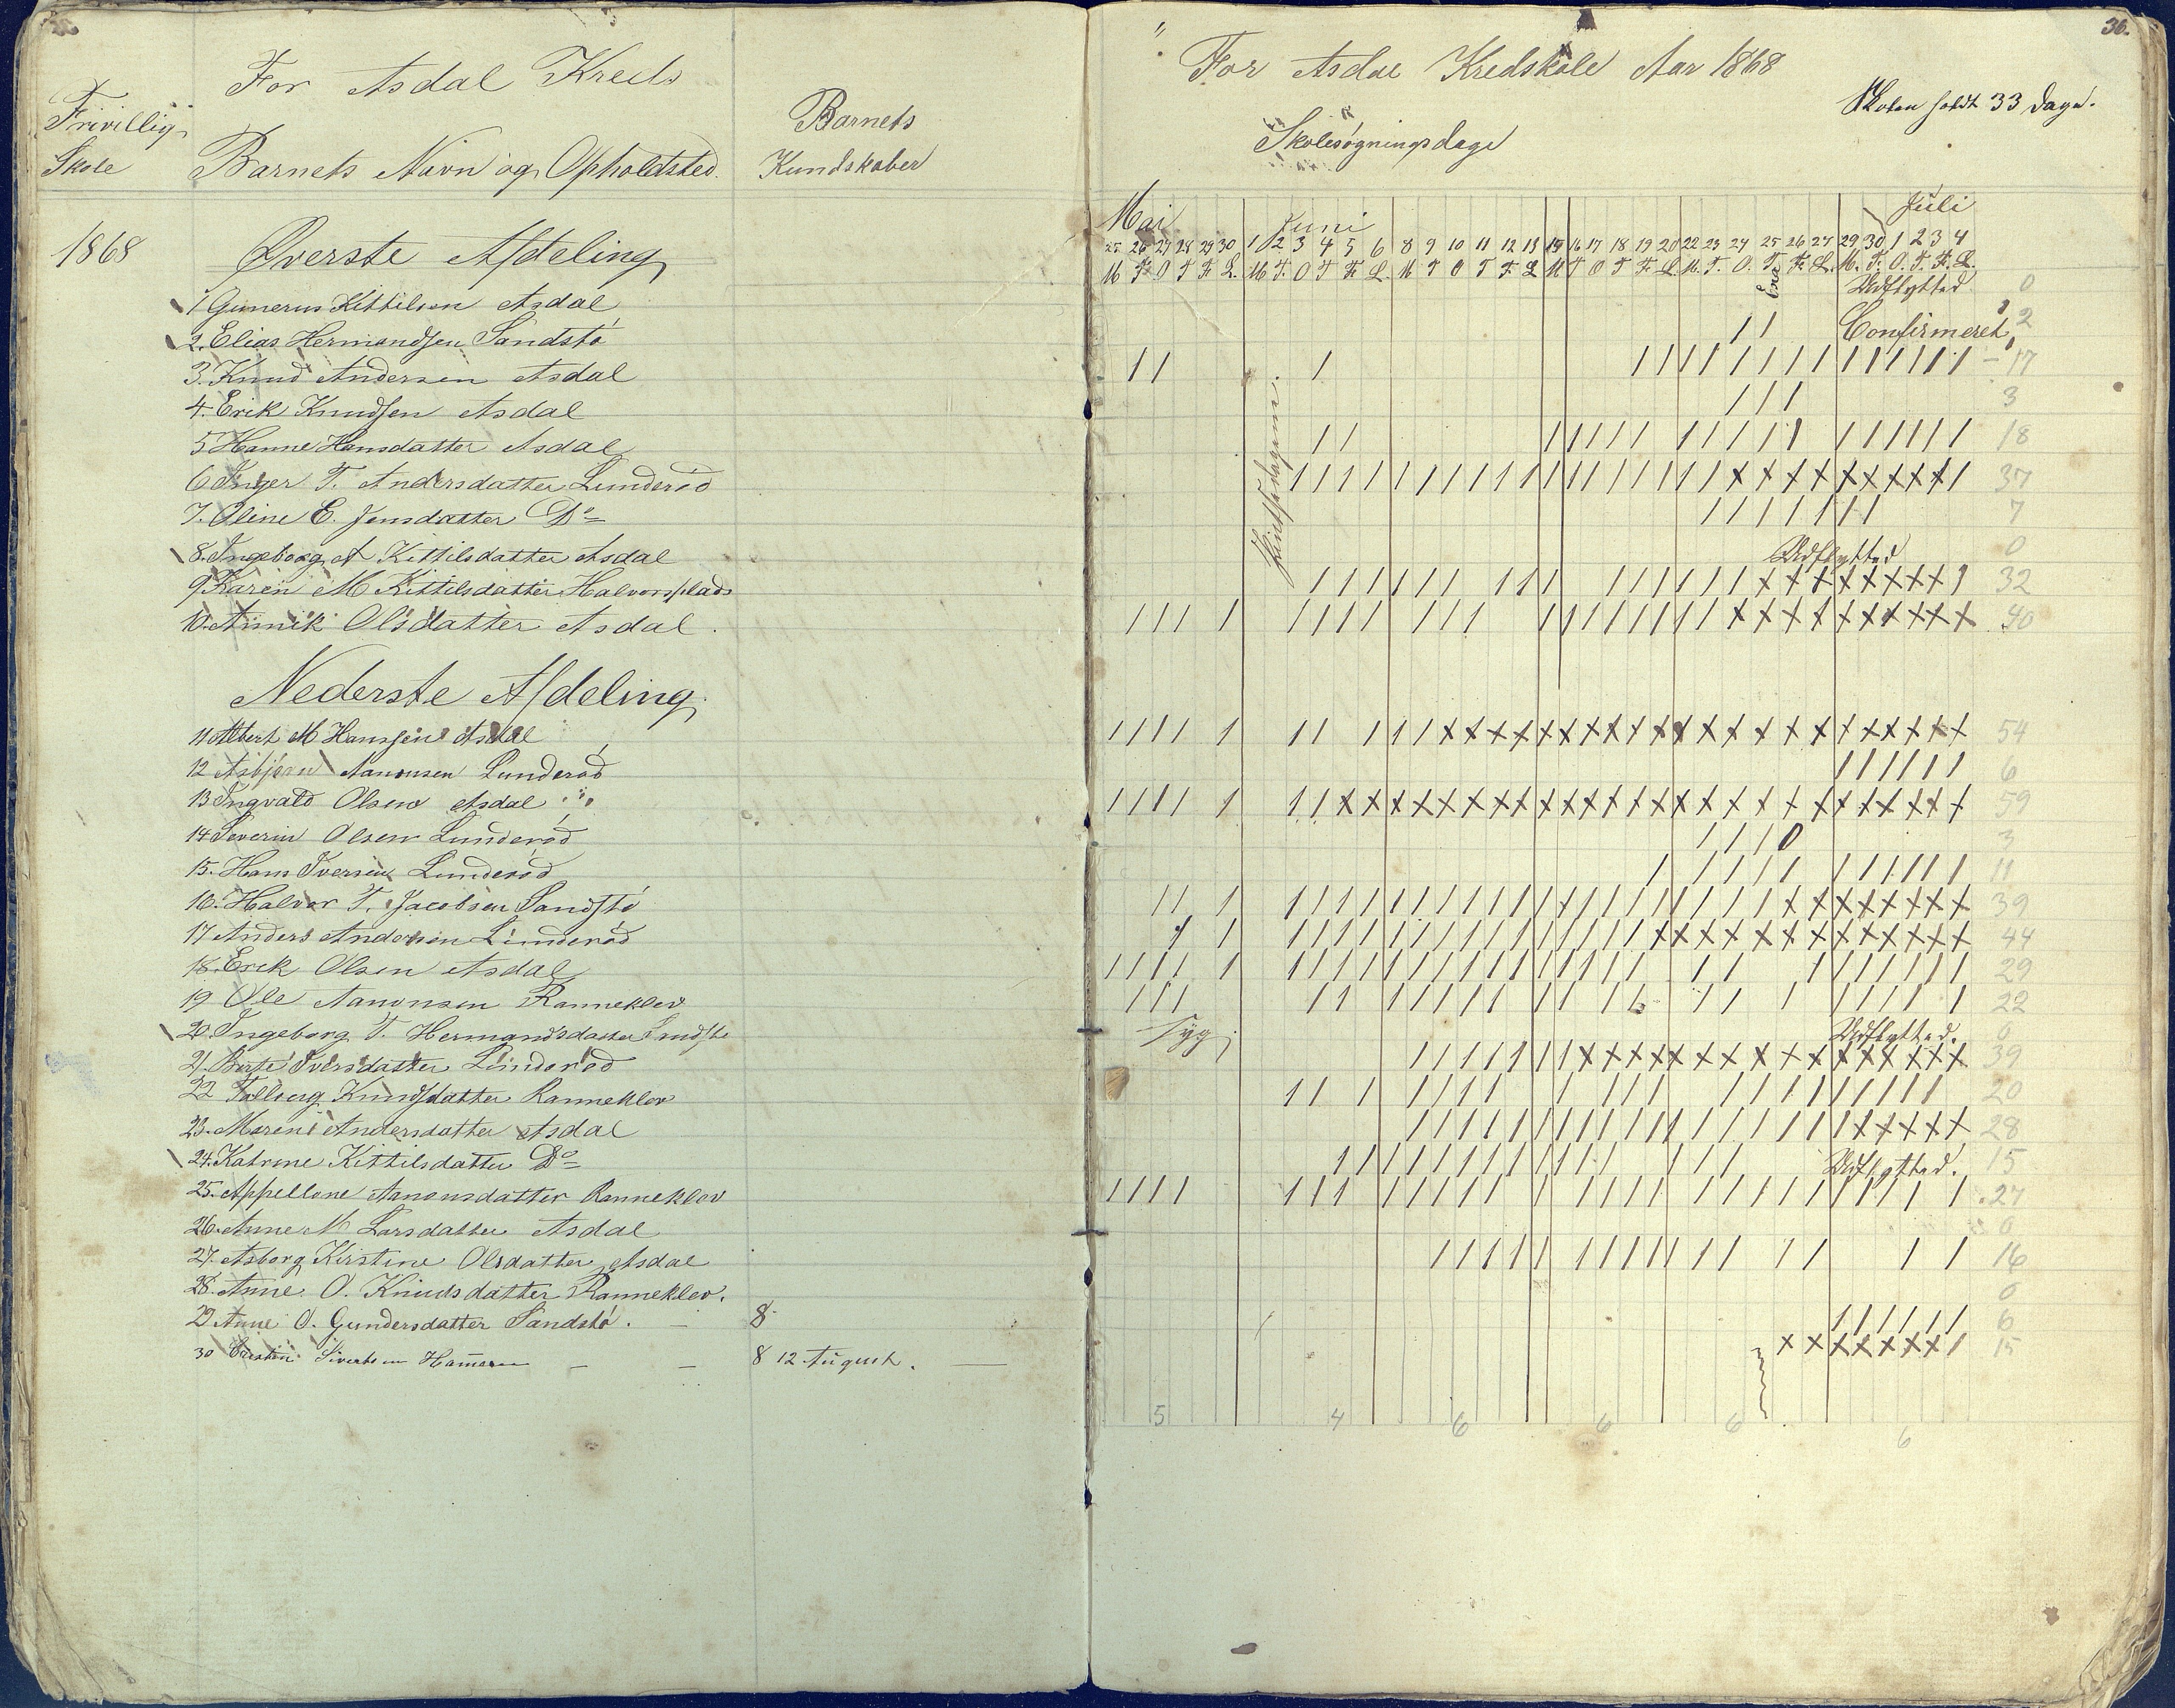 For Asdal Kreds
Frivillig
Skole
Barnets Navn og Opholdsted.
Barnets
Kundskaber
1868
Øverste Afdeling
1 Gunerius Kittilsen Asdal
2. Elias Hermandsen Sandstø
3. Knud Andersen Asdal
4. Erik Knudsen Asdal
5 Hanne Hansdatter Asdal
6 Inger T. Andersdatter Lunderød
7. Oline E. Jensdatter Do
8. Ingeborg A Kittilsdatter Asdal
9 Karen M Kittilsdatter Halvorsplads
10. Annik Olsdatter Asdal.
Nederste Afdeling
11 Albert M Hanssen Asdal
12 Asbjørn Aanonsen Lunderød
13 Ingvald Olsen Asdal
14 Severin Olsen Lunderød
15. Hans Iversen Lunderød
16. Halvor T. Jacobsen Sandstø
17 Anders Andersen Lunderød
18. Erik Olsen Asdal
19 Ole Aanonsen Ranneklev
20. Ingeborg T. Hermandsdatter
21. Berte Iversdatter Lunderød
22 Knudsdatter Ranneklev
23. Maren Andersdatter Asdal
24. Katrine Kittilsdatter Do
25. Appellone Aanonsdatter Ranneklev
26. Anne M Larsdatter Asdal
27. Asborg Kirstine Olsdatter Asdal
28. Anne O. Knudsdatter Ranneklev.
29 Anne O. Gundersdatter Sandstø. - 8
30 Sivertsen - - 8 12 August.
36.
For Asdal Kredskole Aar 1868
Skolen holdt 33 Dage.
Skolesøgningsdage
Mai Juni Juli
25 26 27 28 29 30 1 2 3 4 5 6 8 9 10 11 12 13 15 16 17 18 19 20 22 23 24 25 26 27 29 30 1 2 3 4
M T O T F L. M T. O T F. L. M T O T F. L M T O T F. L M. T. O. T. F. L. M. T. O. T. F. L.
Udflyttet 0
Confirmeret 2
17
3
18
37
7
Udflyttet 0
32
40
54
6
59
3
11
39
44
29
22
Syg Udflyttet. 0
39
20
28
Udflyttet. 15
27
0
16
0
6
15
5 4 6 6 6 6